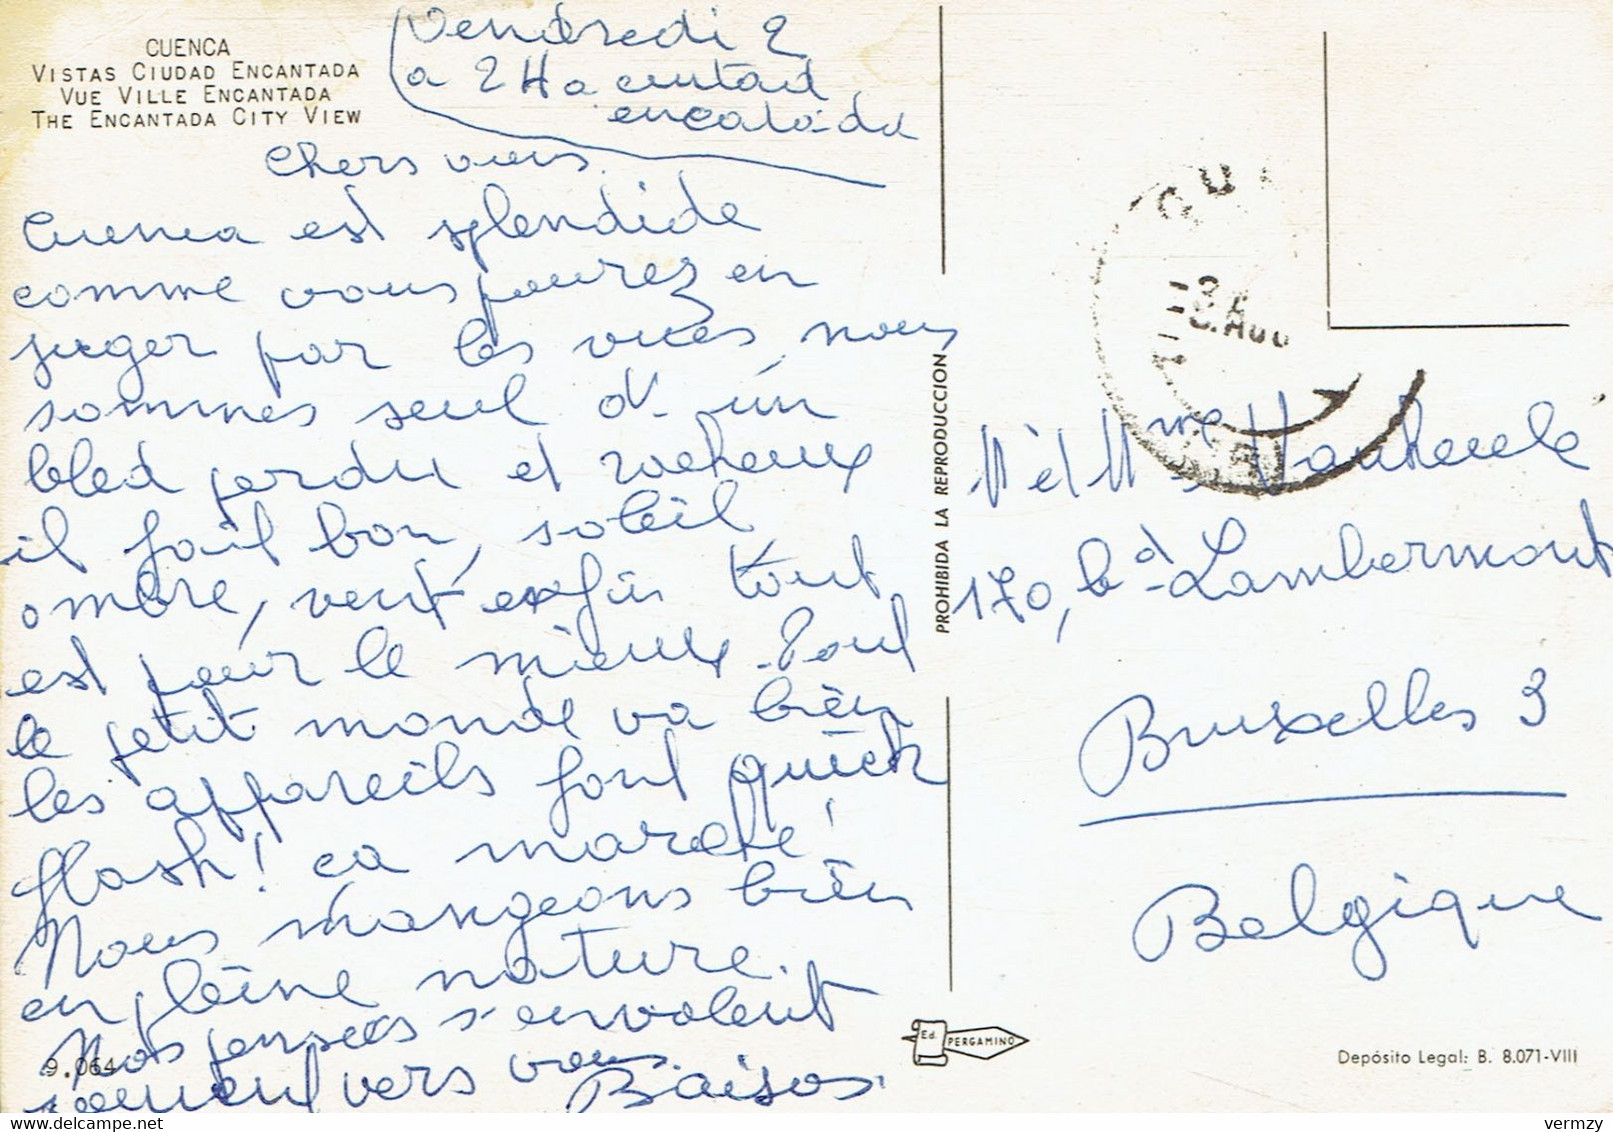 CUENCA
VISTAS CIUDAD ENCANTADA
VUE VILLE ENCANTADA
THE ENCANTADA CITY VIEW
Vendredi 2
a 2 H a ciutad
encatada
Chers vous.
Cuenca est splendide
comme vous pourez en
juger par les vues, nous
sommes seul ds un
bled perdu et rocheux
il fait bon, soleil,
ombre, vent enfin tout
est pour le mieux. Tout
le petit monde va bien
les appareils font quick
flash! ca marche!
Nous mangeons bien
en pleine nature.
Nos pensées s'envolent
vers vous.
Baisos.
9.064
PROHIBIDA LA REPRODUCCION
Ed. PERGAMINO
CU
3 AGO
M et Mme
170, bd Lambermont
Bruxelles 3
Belgique
Depósito Legal: B. 8.071-VIII
www.delcampe.net
vermzy